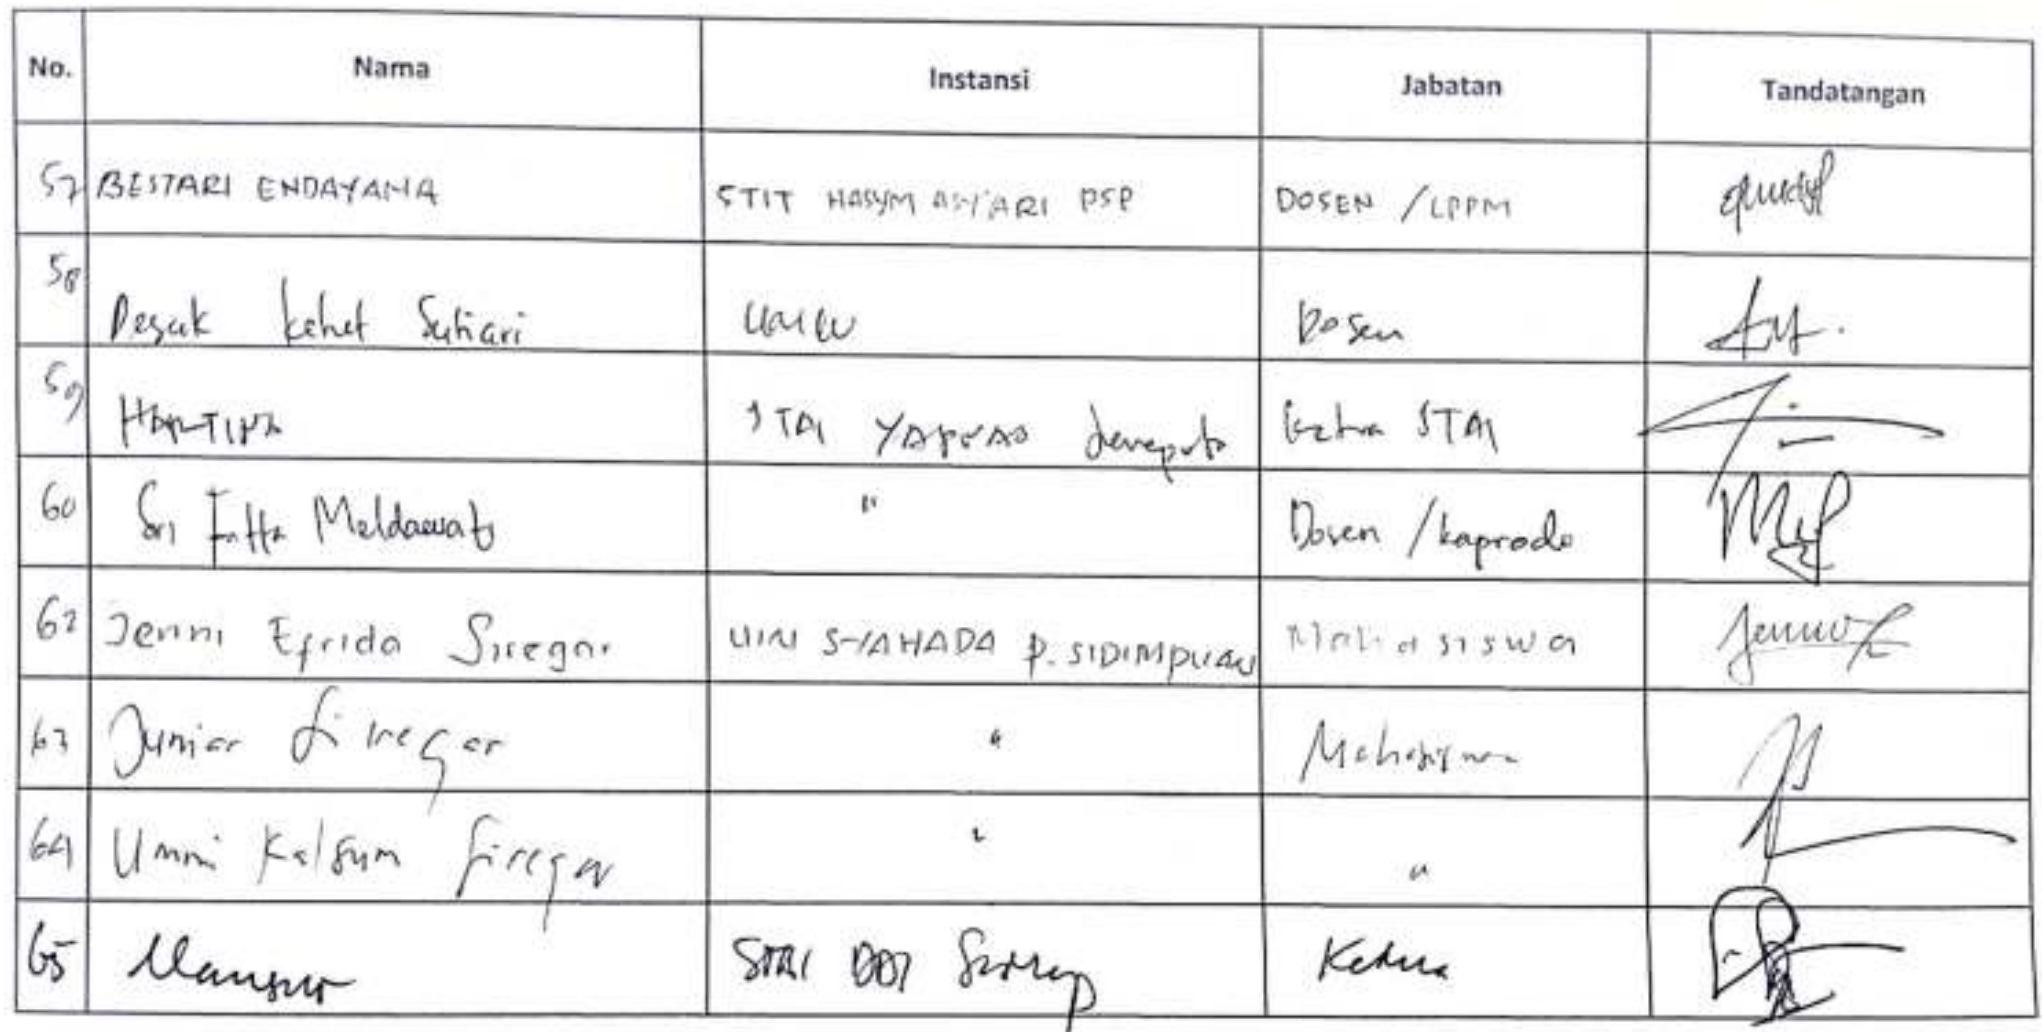 No. Nama Instansi Jabatan Tandatangan
57 BESTARI ENDAYANA STIT HASYM ASY'ARI PSP DOSEN /LPPM
58 Desak Ketut Sutiari Dosen
59 HARTINA STAI YAPNAS Jeneponto Ketua STAI
60 Sri Fatta Meldawati " Dosen / kaprodi
62 Jenni Efrida Siregar UIN SYAHADA P. SIDIMPUAN Mahasiswa
63 Juniar Siregar " Mahasiswa
64 Ummi Kalsum Siregar " "
65 Mansur STAI DDI Sidrap Ketua